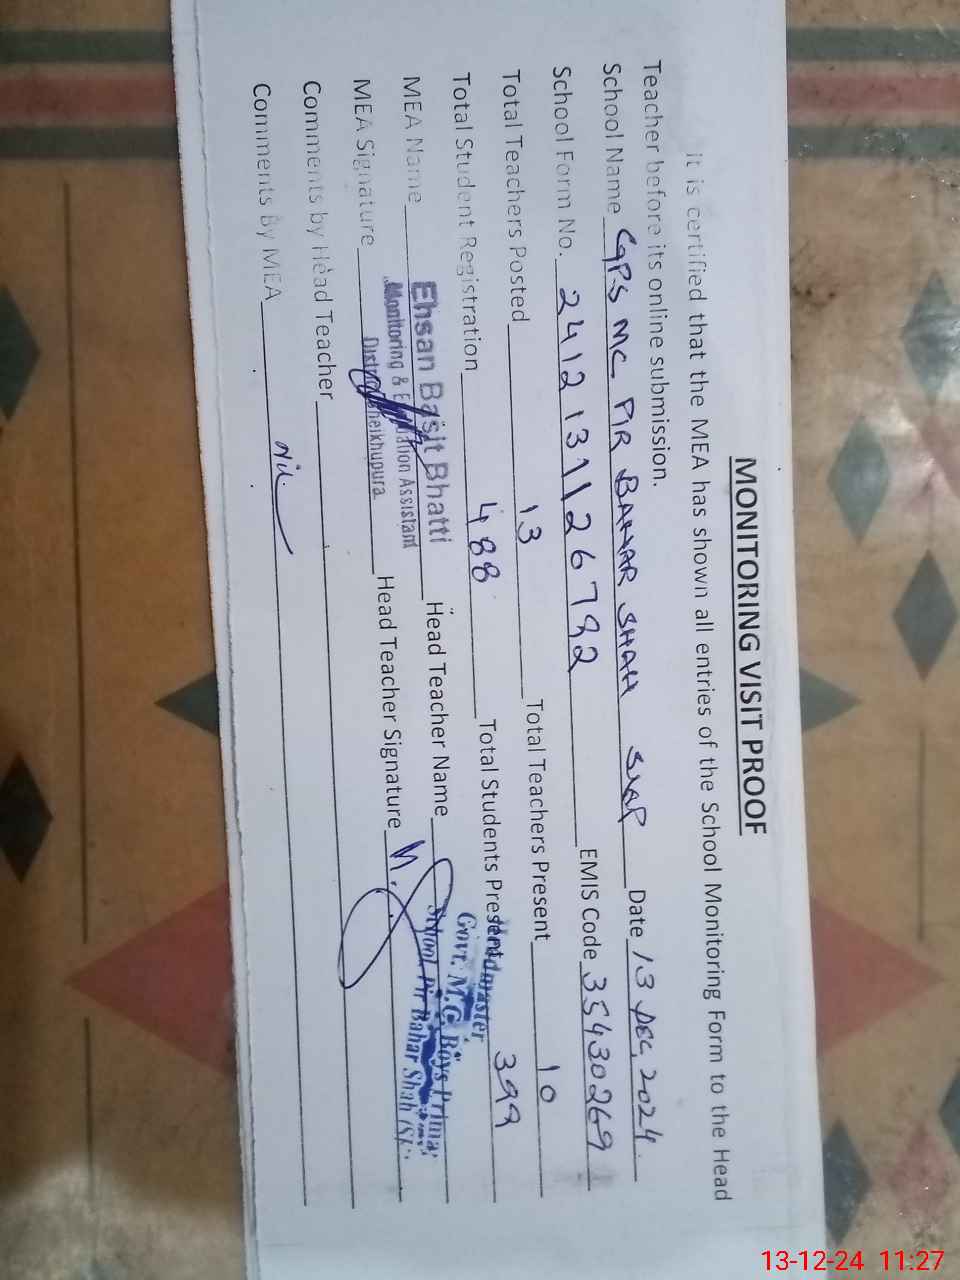 MONITORING VISIT PROOF
it is certified that the MEA has shown all entries of the School Monitoring Form to the Head
Teacher before its online submission.
School Name CGPS MC PIR BAHAR SHAH SKP Date 13 DEC, 2024.
School Form No. 2412131126792 EMIS Code 35430269
Total Teachers Posted 13 Total Teachers Present 10
Total Student Registration 488 Total Students Present 399
Headmaster
Govt. M.C. Boys Primary
School Pir Bahar Shah
MEA Name Ehsan Basit Bhatti Head Teacher Name
Monitoring & Evaluation Assistant
District Sheikhupura
MEA Signature Head Teacher Signature
Comments by Head Teacher
Comments By MEA Nil
13-12-24 11:27